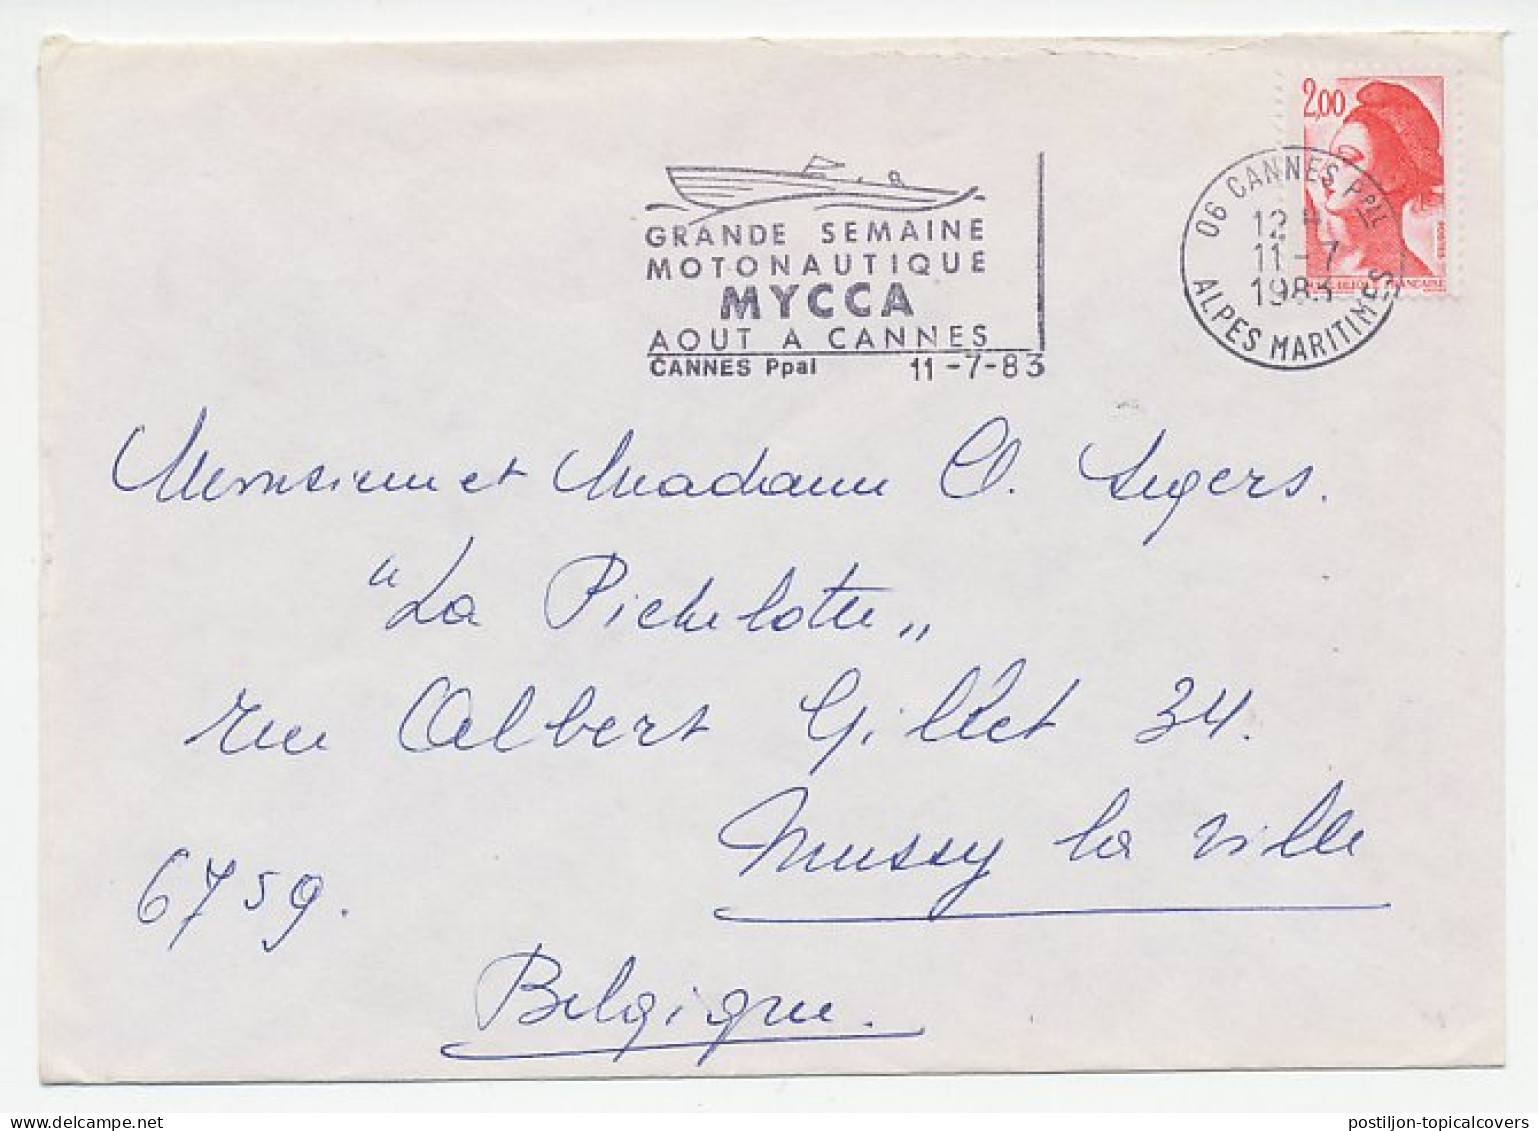 2,00
06 CANNES Ppal
12 H
11 - 7
1983
ALPES MARITIMES
GRANDE SEMAINE
MOTONAUTIQUE
MYCCA
AOUT A CANNES
CANNES Ppal 11-7-83
Monsieur et Madame O. Segers.
"La Pichelotte"
rue Albert Gillet 34.
Mussy la Ville
6759.
Belgique.
postiljon-topicalcovers / delcampe.net